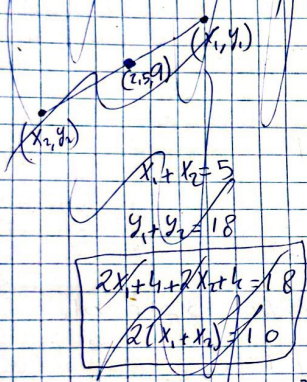 (x₁,y₁)
(2,5,9)
(x₂,y₂)
x₁+x₂=5
y₁+y₂=18
2x₁+4+2x₂+4=18
2(x₁+x₂)=10